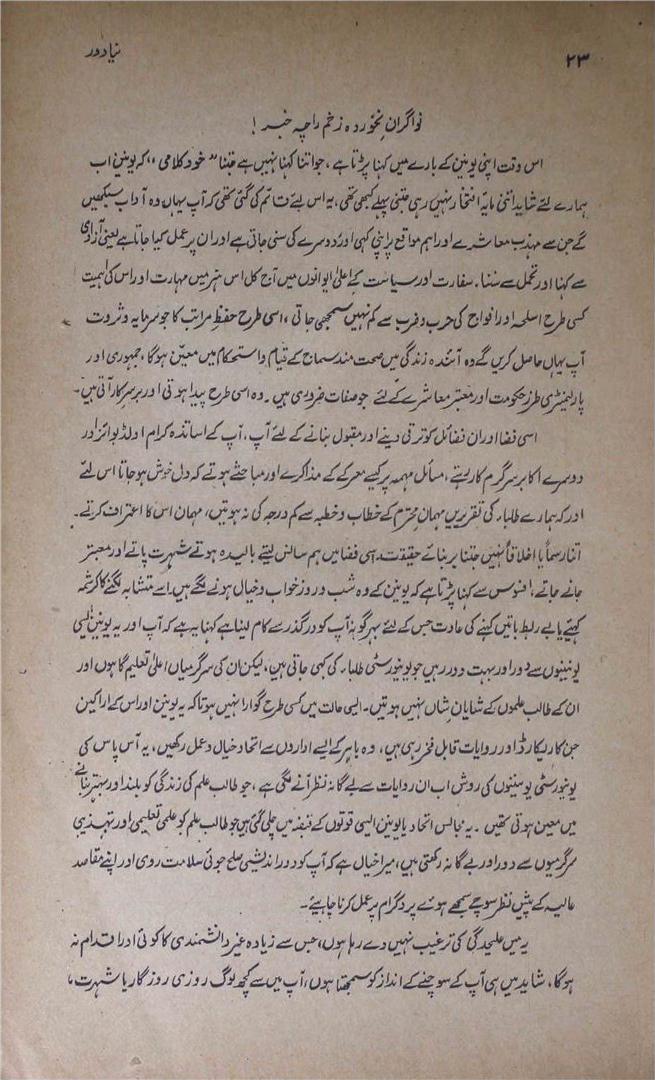 ۲۳
نیا دور
نواگرانِ نخوردہ زخم را چہ خبر !
اس وقت اپنی یونین کے بارے میں کہنا پڑتا ہے ، جو اتنا کہنا نہیں ہے جتنا " خود کلامی " کہ یونین اب
ہمارے لئے شاید اتنی مایۂ افتخار نہیں رہی جتنی پہلے کبھی تھی، یہ اس لئے قائم کی گئی تھی کہ آپ یہاں وہ آداب سیکھیں
گے جن سے مہذب معاشرے اور اہم مواقع پر اپنی کہی اور دوسرے کی سنی جاتی ہے اور ان پر عمل کیا جاتا ہے یعنی آزادی
سے کہنا اور تحمل سے سننا. سفارت اور سیاست کے اعلیٰ ایوانوں میں آج کل اس ہنر میں مہارت اور اس کی اہمیت
کسی طرح اسلحہ اور افواج کی حرب و ضرب سے کم نہیں سمجھی جاتی ، اسی طرح حفظِ مراتب کا جو سرمایہ و ثروت
آپ یہاں حاصل کریں گے وہ آئندہ زندگی میں صحت مند سماج کے قیام و استحکام میں معین ہوگا، جمہوری اور
پارلیمنٹری طرزِ حکومت اور معتبر معاشرے کے لئے جو صفات ضروری ہیں ۔ وہ اسی طرح پیدا ہوتی اور برسرِ کار آتی ہیں ۔
اسی فضا اور ان فضائل کو ترقی دینے اور مقبول بنانے کے لئے آپ ، آپ کے اساتذہ کرام اولڈ بوائز اور
دوسرے اکابر سرگرم کار رہتے ، مسائل مہمہ پر کیسے معرکے کے مذاکرے اور مباحثے ہوتے کہ دل خوش ہو جاتا اس لئے
اور کہ ہمارے طلباء کی تقریریں مہمانِ محترم کے خطاب و خطبہ سے کم درجہ کی نہ ہوتیں، مہمان اس کا اعتراف کرتے ۔
اتنا رسماً یا اخلاقاً نہیں جتنا بر بنائے حقیقت۔ اسی فضا میں ہم سانس لیتے بالیدہ ہوتے شہرت پاتے اور معتبر
جانے جاتے ، افسوس سے کہنا پڑتا ہے کہ یونین کے وہ شب و روز خواب و خیال ہونے لگے ہیں اسے متشابہ لگنے کا کرشمہ
کہیئے یا بے ربط باتیں کہنے کی عادت جس کے لئے بہر گونہ آپ کو درگذر سے کام لینا ہے کہنا یہ ہے کہ آپ اور یہ یونین ایسی
یونینوں سے دور اور بہت دور رہیں جو یونیورسٹی طلباء کی کہی جاتی ہیں، لیکن ان کی سرگرمیاں اعلیٰ تعلیم گاہوں اور
ان کے طالب علموں کے شایان شاں نہیں ہوتیں۔ ایسی حالت میں کسی طرح گوارا نہیں ہوتا کہ یہ یونین اور اس کے اراکین
جن کا ریکارڈ اور روایات قابل فخر رہی ہیں ، وہ باہر کے ایسے اداروں سے اتحاد خیال و عمل رکھیں، یہ آس پاس کی
یونیورسٹی یونینوں کی روش اب ان روایات سے بے گانہ نظر آنے لگی ہے ، جو طالب علم کی زندگی کو بلند اور بہتر بنانے
میں معین ہوتی تھیں ۔ یہ مجالس اتحاد یا یونین ایسی قوتوں کے قبضہ میں چلی گئی ہیں جو طالب علم کو علمی تعلیمی اور تہذیبی
سرگرمیوں سے دور اور بے گانہ رکھتی ہیں، میرا خیال ہے کہ آپ کو دور اندیشی صلح جوئی سلامت روی اور اپنے مقاصد
عالیہ کے پیش نظر سوچے سمجھے ہوئے پروگرام پر عمل کرنا چاہیئے ۔
یہ میں علیحدگی کی ترغیب نہیں دے رہا ہوں، جس سے زیادہ غیر دانشمندی کا کوئی اور اقدام نہ
ہوگا، شاید میں ہی آپ کے سوچنے کے انداز کو سمجھتا ہوں، آپ میں سے کچھ لوگ روزی روزگار یا شہرت